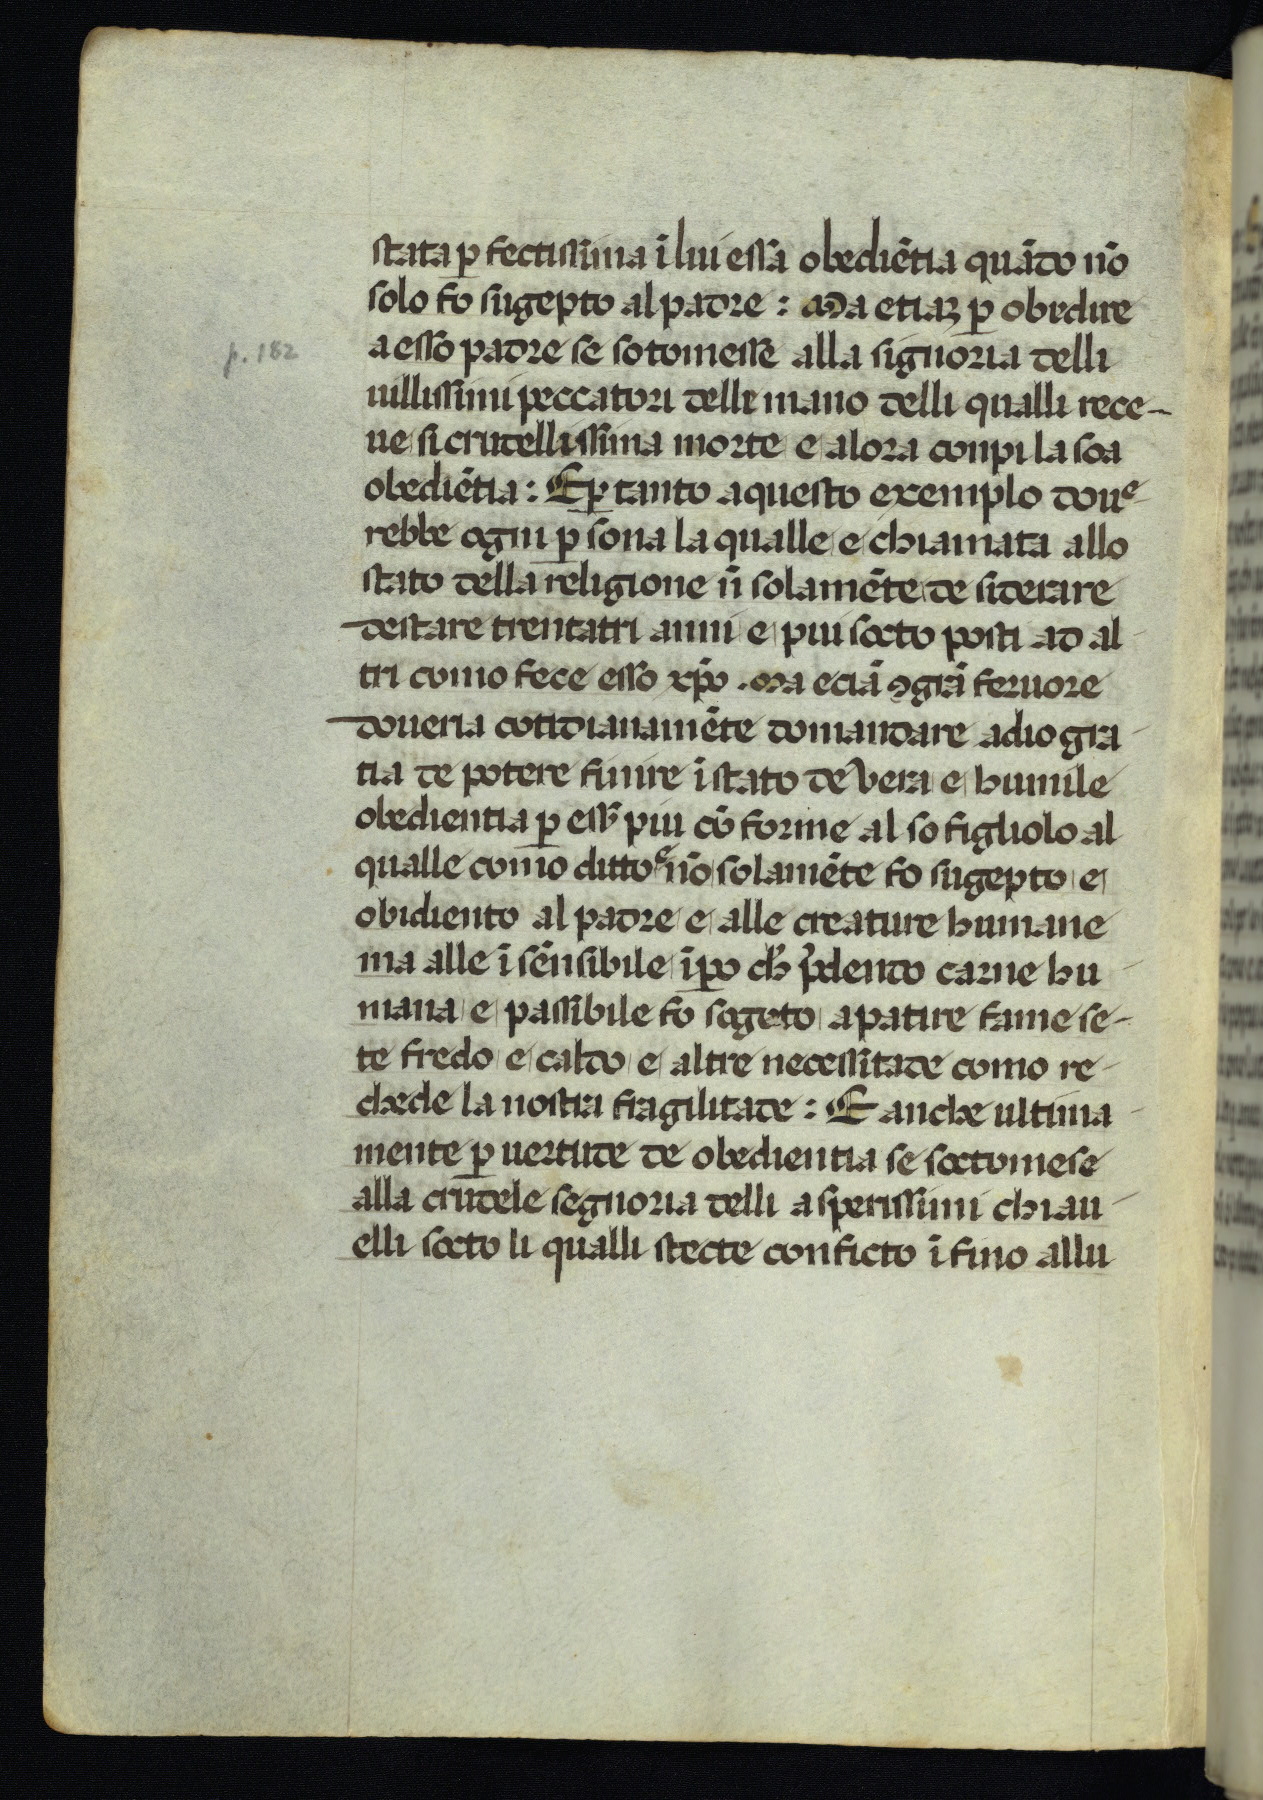 stata ꝑfectissima ī lui essā obediētia quādo nō
solo fo sugepto al padre : Ma etiaꝫ ꝑ obedire
a esso padre se sotomesse alla signoria delli
p. 182
uillissimi peccatori delle mano delli qualli rece-
ue si crudellissima morte e alora conpi la soa
obediētia : E ꝑ tanto a questo exemplo doue
rebbe ogni ꝑsona la qualle e chiamata allo
stato della religione n̄ solamēte desiderare
destare trentatri anni e piu socto posti ad al
tri como fece esso xp̄o . Ma eciā ꝯ grā feruore
doueria cotidianamēte domandare a dio gra
tia de potere finire ī stato de vera e humile
obedientia ꝑ ess̄ piu cō forme al so figliolo al
qualle como ditto e nō solamēte fo sugepto e
obidiento al padre e alle creature humane
ma alle ī sēnsibile īꝑo ch̄ p̄dento carne hu
mana e passibile fo sogeto a patire fame se-
te fredo e caldo e altre necessitade como re
chede la nostra fragilitade : E anche ultima
mente ꝑ uertude de obedientia se soctomese
alla crudele segnoria delli asperissimi chiau
elli socto li qualli stecte conficto ī fino allu